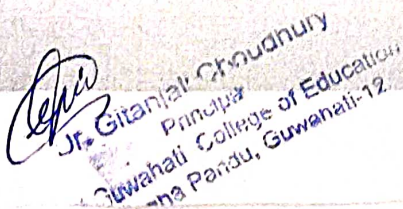 Dr. Gitanjali Choudhury
Principal
Guwahati College of Education
Pandu, Guwahati-12